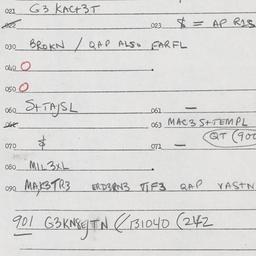 021 G3 KACT3T
023 $ = AP R1S
030 BROKN / QAP ALSO FARFL
040
050
060 S+TAJSL
061 —
063 MAC3 S+TEMPL
070 $
071 —
QT (900
080 MIL3XL
090 MAK3TR3 ERD3RN3 TTF3 QAP VASTN
901 G3KNSEJTN (/131040 (242